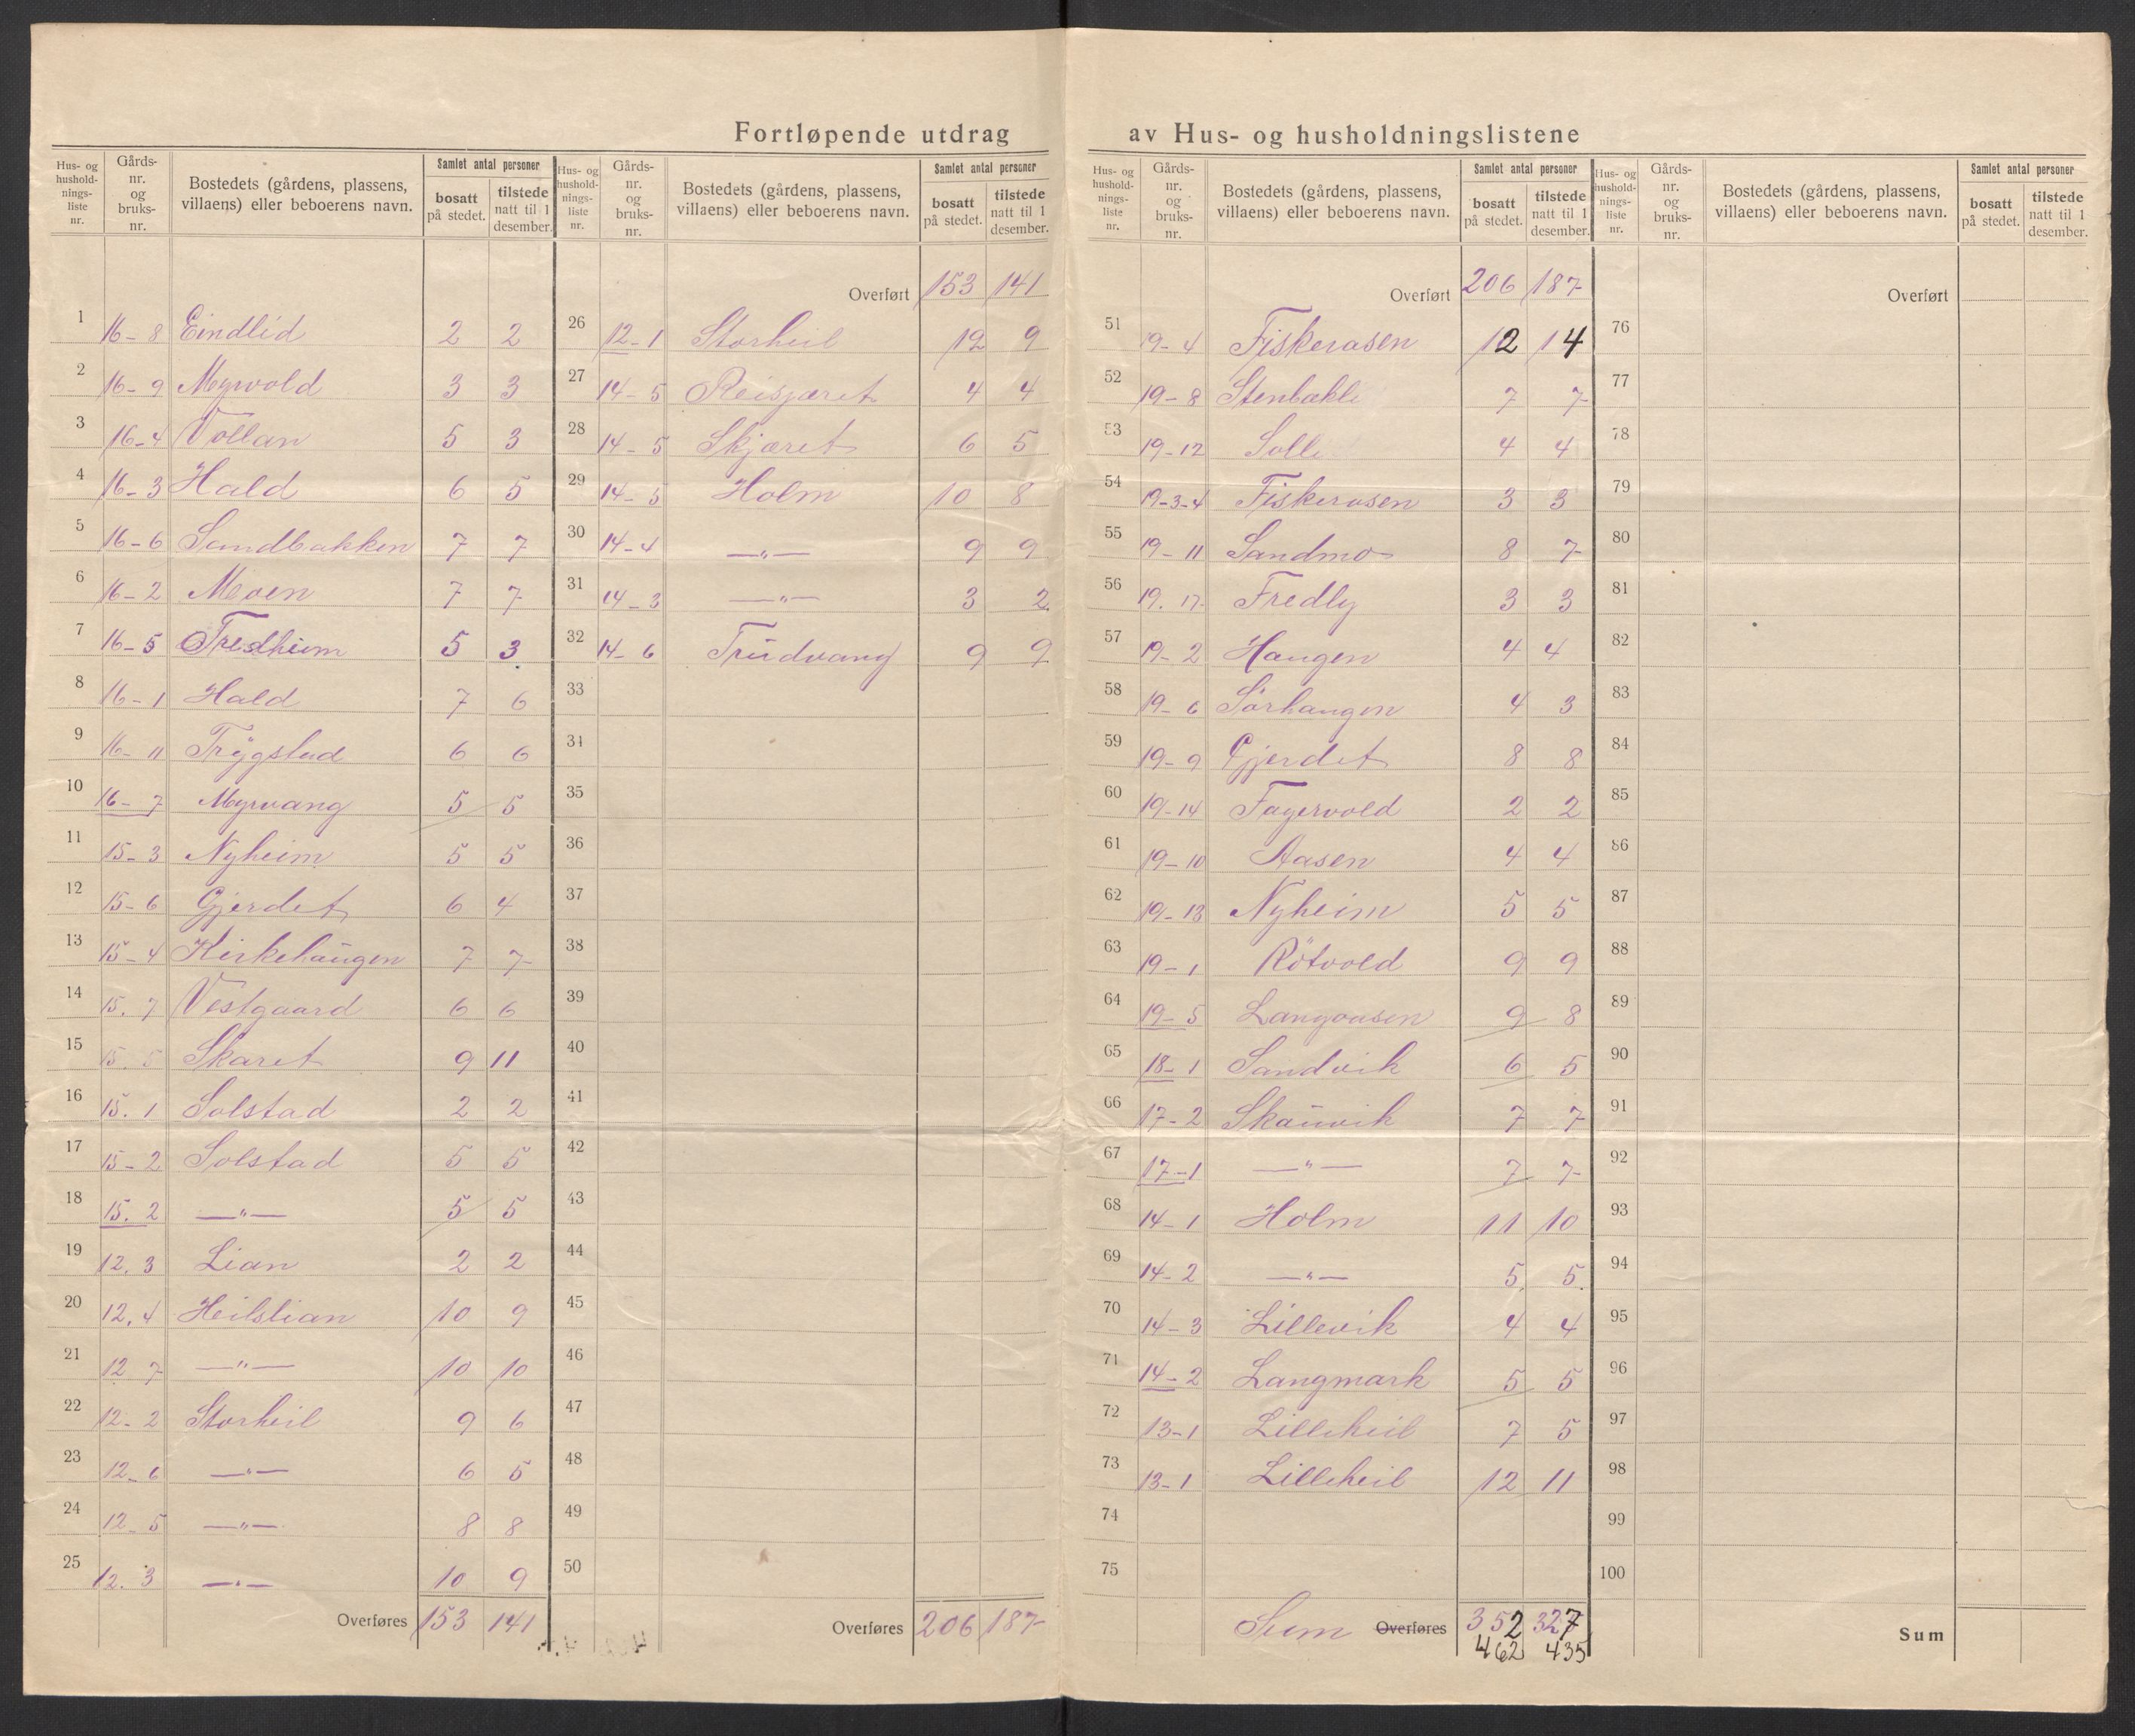 Fortløpende utdrag av Hus- og husholdningslistene
Hus- og husholdnings-liste nr. | Gårds-nr. og bruks-nr. | Bostedets (gårdens, plassens, villaens) eller beboerens navn. | Samlet antal personer | bosatt på stedet. | tilstede natt til 1 desember.
1 16-8 Eindlid 2 2
2 16-9 Myrvold 3 3
3 16-4 Vollan 5 3
4 16-3 Hald 6 5
5 16-6 Sandbakken 7 7
6 16-2 Moen 7 7
7 16-5 Fredheim 5 3
8 16-1 Hald 7 6
9 16-11 Trygstad 6 6
10 16-7 Myrvang 5 5
11 15-3 Nyheim 5 5
12 15-6 Gjerdet 6 4
13 15-4 Kirkehaugen 7 7
14 15.7 Vestgaard 6 6
15 15.5 Skaret 9 11
16 15.1 Solstad 2 2
17 15-2 Solstad 5 5
18 15.2 —"— 5 5
19 12.3 Lian 2 2
20 12.4 Heilslian 10 9
21 12 7 —"— 10 10
22 12-2 Storheil 9 6
23 12-6 —"— 6 5
24 12-5 —"— 8 8
25 12.3 —"— 10 9
Overføres 153 141
Hus- og husholdnings-liste nr. | Gårds-nr. og bruks-nr. | Bostedets (gårdens, plassens, villaens) eller beboerens navn. | Samlet antal personer | bosatt på stedet. | tilstede natt til 1 desember.
Overført 153 141
26 12-1 Storheil 12 9
27 14-5 Reisjæret 4 4
28 14-5 Skjæret 6 5
29 14-5 Holm 10 8
30 14-4 —"— 9 9
31 14-3 —"— 3 2
32 14-6 Trudvang 9 9
33
34
35
36
37
38
39
40
41
42
43
44
45
46
47
48
49
50
Overføres 206 187
Hus- og husholdnings-liste nr. | Gårds-nr. og bruks-nr. | Bostedets (gårdens, plassens, villaens) eller beboerens navn. | Samlet antal personer | bosatt på stedet. | tilstede natt til 1 desember.
Overført 206 187
51 19-4 Fiskerasen 12 14
52 19-8 Stenbakk 7 7
53 19-12 Solli 4 4
54 19-3-4 Fiskerasen 3 3
55 19-11 Sandmo 8 7
56 19.17 Fredly 3 3
57 19-2 Haugen 4 4
58 19-6 Sörhaugen 4 3
59 19-9 Gjerdet 8 8
60 19-14 Fagervold 2 2
61 19-10 Aasen 4 4
62 19-13 Nyheim 5 5
63 19-1 Rötvold 9 9
64 19-5 Langaasen 9 8
65 18-1 Sandvik 6 5
66 17-2 Skauvik 7 7
67 17-1 —"— 7 7
68 14-1 Holm 11 10
69 14-2 —"— 5 5
70 14-3 Lillevik 4 4
71 14-2 Langmark 5 5
72 13-1 Lilleheil 7 5
73 13-1 Lilleheil 12 11
74
75
Sum Overføres 352 327
462 435
Hus- og husholdnings-liste nr. | Gårds-nr. og bruks-nr. | Bostedets (gårdens, plassens, villaens) eller beboerens navn. | Samlet antal personer | bosatt på stedet. | tilstede natt til 1 desember.
Overført
76
77
78
79
80
81
82
83
84
85
86
87
88
89
90
91
92
93
94
95
96
97
98
99
100
Sum